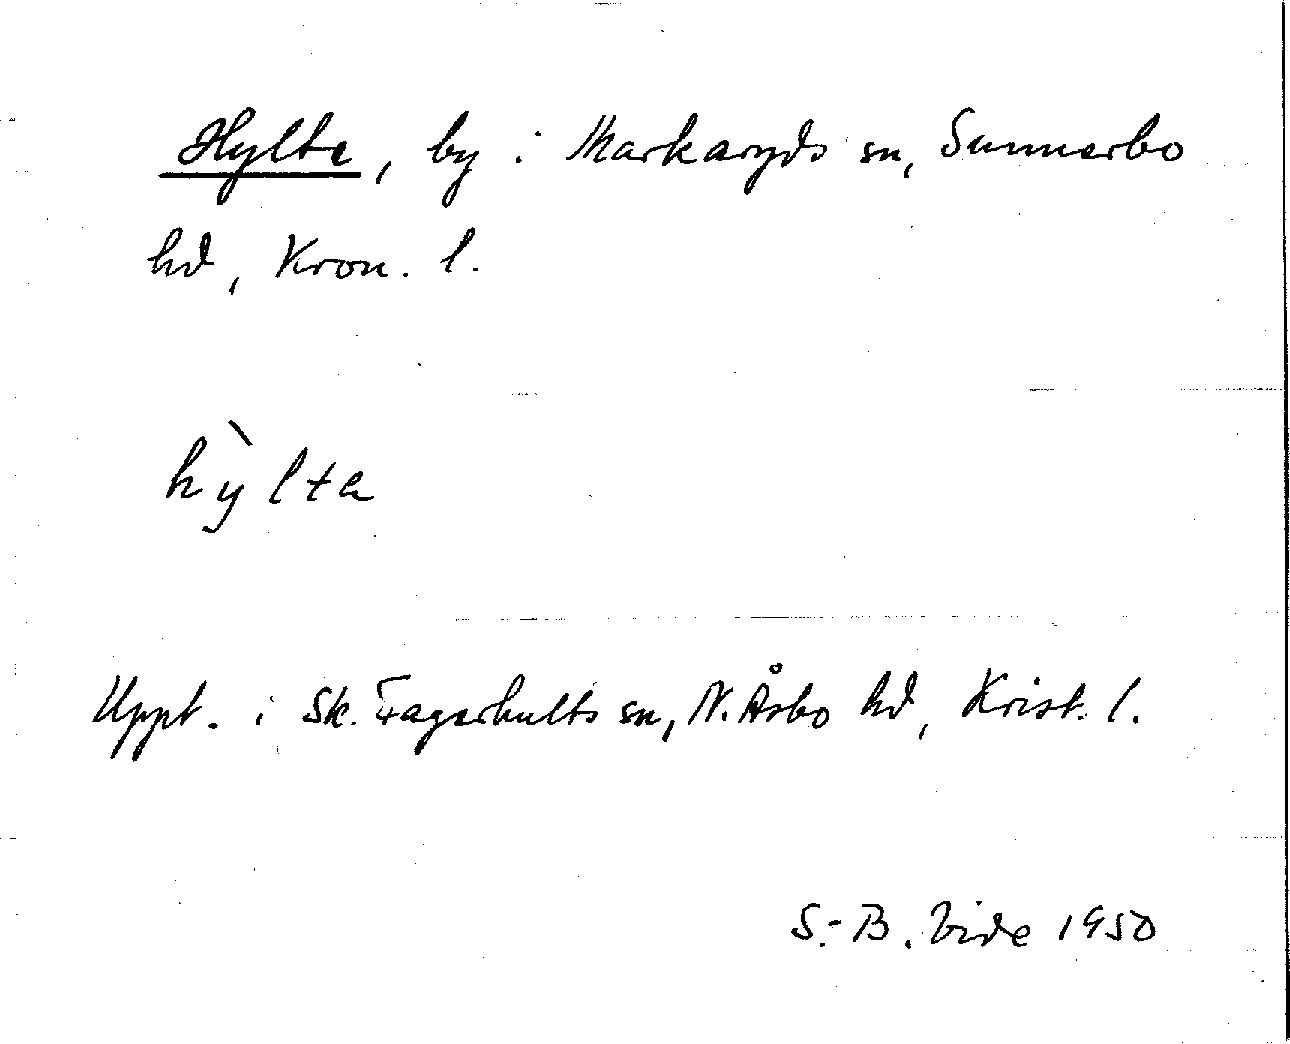 Hylte, by i Markaryds sn, Sunnerbo
hd, Kron. l.
hỳlta
Uppt. i Sk. Fagerhults sn, N. Åsbo hd, Krist. l.
S.-B. Vide 1950